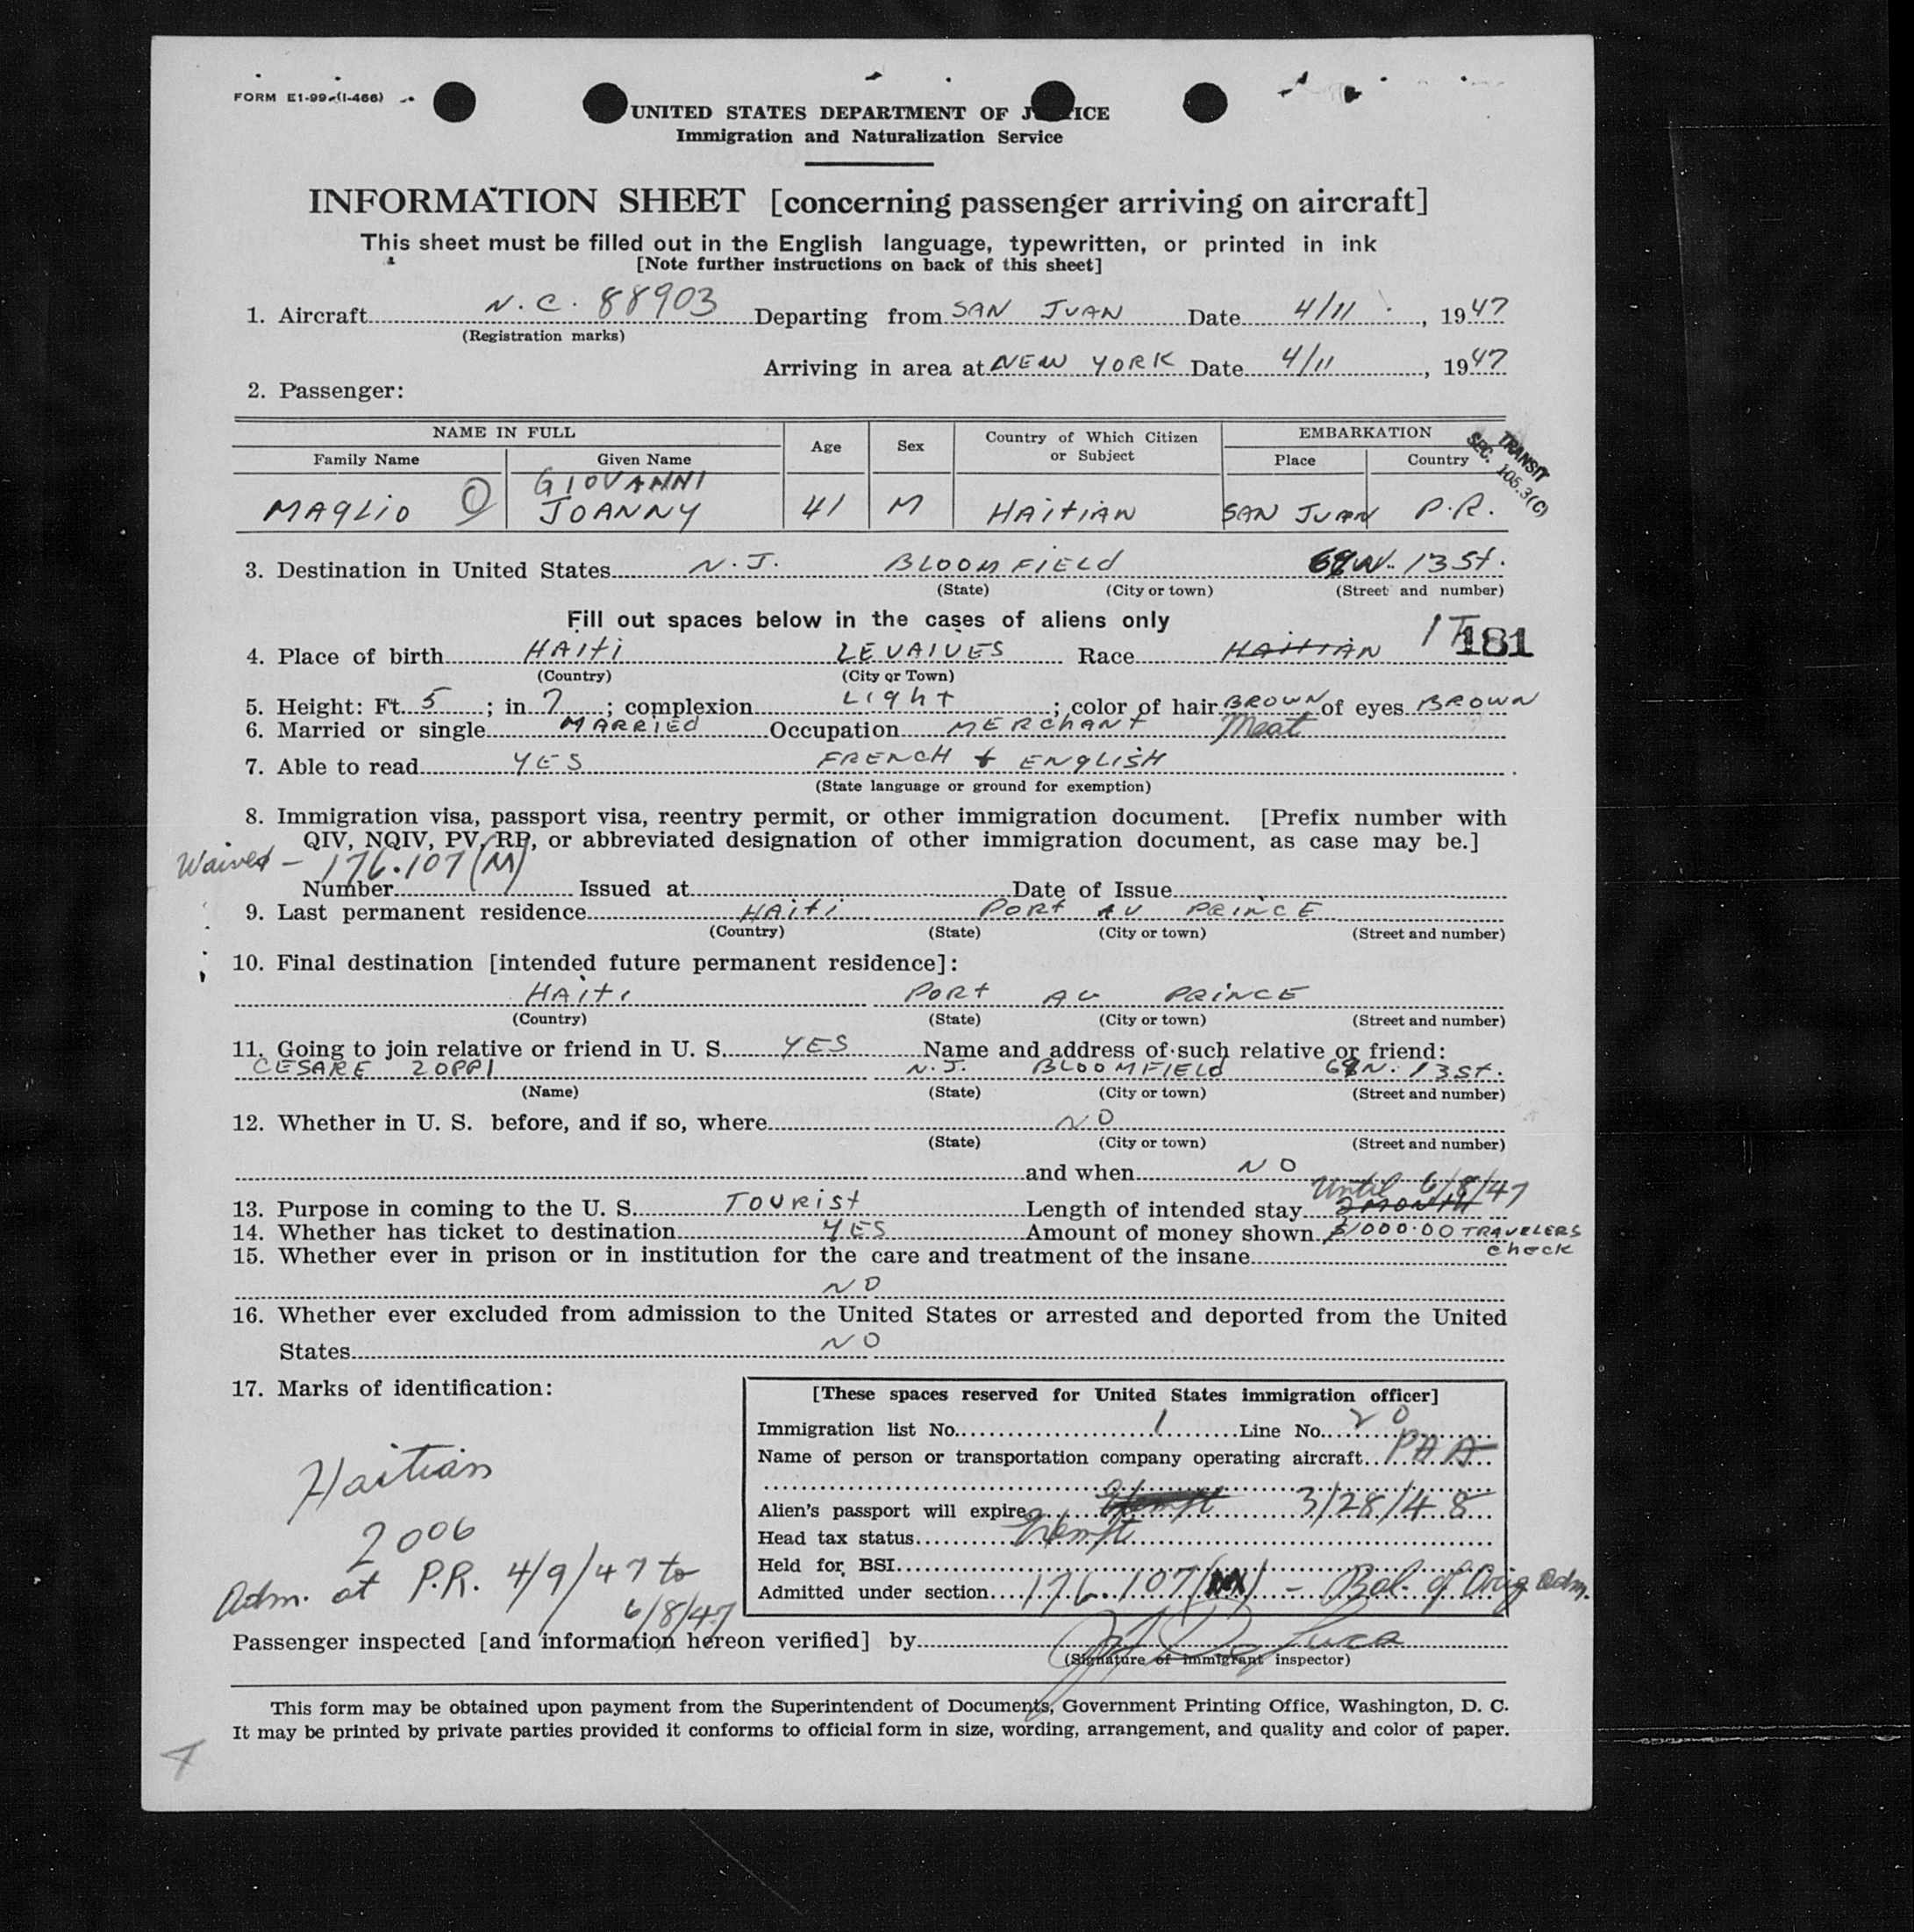 FORM E1-99 (I-466)
UNITED STATES DEPARTMENT OF JUSTICE
Immigration and Naturalization Service
INFORMATION SHEET [concerning passenger arriving on aircraft]
This sheet must be filled out in the English language, typewritten, or printed in ink
[Note further instructions on back of this sheet]
1. Aircraft N.C. 88903 Departing from SAN JUAN Date 4/11, 1947
(Registration marks)
Arriving in area at NEW YORK Date 4/11, 1947
2. Passenger:
NAME IN FULL Age Sex Country of Which Citizen or Subject EMBARKATION
Family Name Given Name Place Country
TRANSIT
SEC. 105.3(C)
GIOVANNI
MAGLIO JOANNY 41 M HAITIAN SAN JUAN P.R.
3. Destination in United States N.J. BLOOMFIELD N. 13 St.
(State) (City or town) (Street and number)
Fill out spaces below in the cases of aliens only
4. Place of birth HAITI LEVAIVES Race HAITIAN IT 181
(Country) (City or Town)
5. Height: Ft. 5; in 7; complexion LIGHT; color of hair BROWN of eyes BROWN
6. Married or single MARRIED Occupation MERCHANT Meat
7. Able to read YES FRENCH & ENGLISH
(State language or ground for exemption)
8. Immigration visa, passport visa, reentry permit, or other immigration document. [Prefix number with
QIV, NQIV, PV, RP, or abbreviated designation of other immigration document, as case may be.]
Waived - 176.107(M)
Number Issued at Date of Issue
9. Last permanent residence HAITI PORT AU PRINCE
(Country) (State) (City or town) (Street and number)
10. Final destination [intended future permanent residece]:
HAITI PORT AU PRINCE
(Country) (State) (City or town) (Street and number)
11. Going to join relative or friend in U. S. YES Name and address of such relative or friend:
CESARE ZOPPI N.J. BLOOMFIELD N. 13 St.
(Name) (State) (City or town) (Street and number)
12. Whether in U. S. before, and if so, where NO
(State) (City or town) (Street and number)
and when NO
Until 6/8/47
13. Purpose in coming to the U. S. TOURIST Length of intended stay 2 MONTH
14. Whether has ticket to destination YES Amount of money shown $1000.00 TRAVELERS
check
15. Whether ever in prison or in institution for the care and treatment of the insane
NO
16. Whether ever excluded from admission to the United States or arrested and deported from the United
States NO
17. Marks of identification:
[These spaces reserved for United States immigration officer]
Immigration list No. 1 Line No. 20
Name of person or transportation company operating aircraft PAA
Alien's passport will expire 3/28/48
Head tax status Exempt
Held for BSI
Admitted under section 176.107(M) - Bal. of Orig Adm.
Haitian
2006
Adm. at P.R. 4/9/47 to
6/8/47
Passenger inspected [and information hereon verified] by De Luca
(Signature of immigrant inspector)
This form may be obtained upon payment from the Superintendent of Documents, Government Printing Office, Washington, D. C.
It may be printed by private parties provided it conforms to official form in size, wording, arrangement, and quality and color of paper.